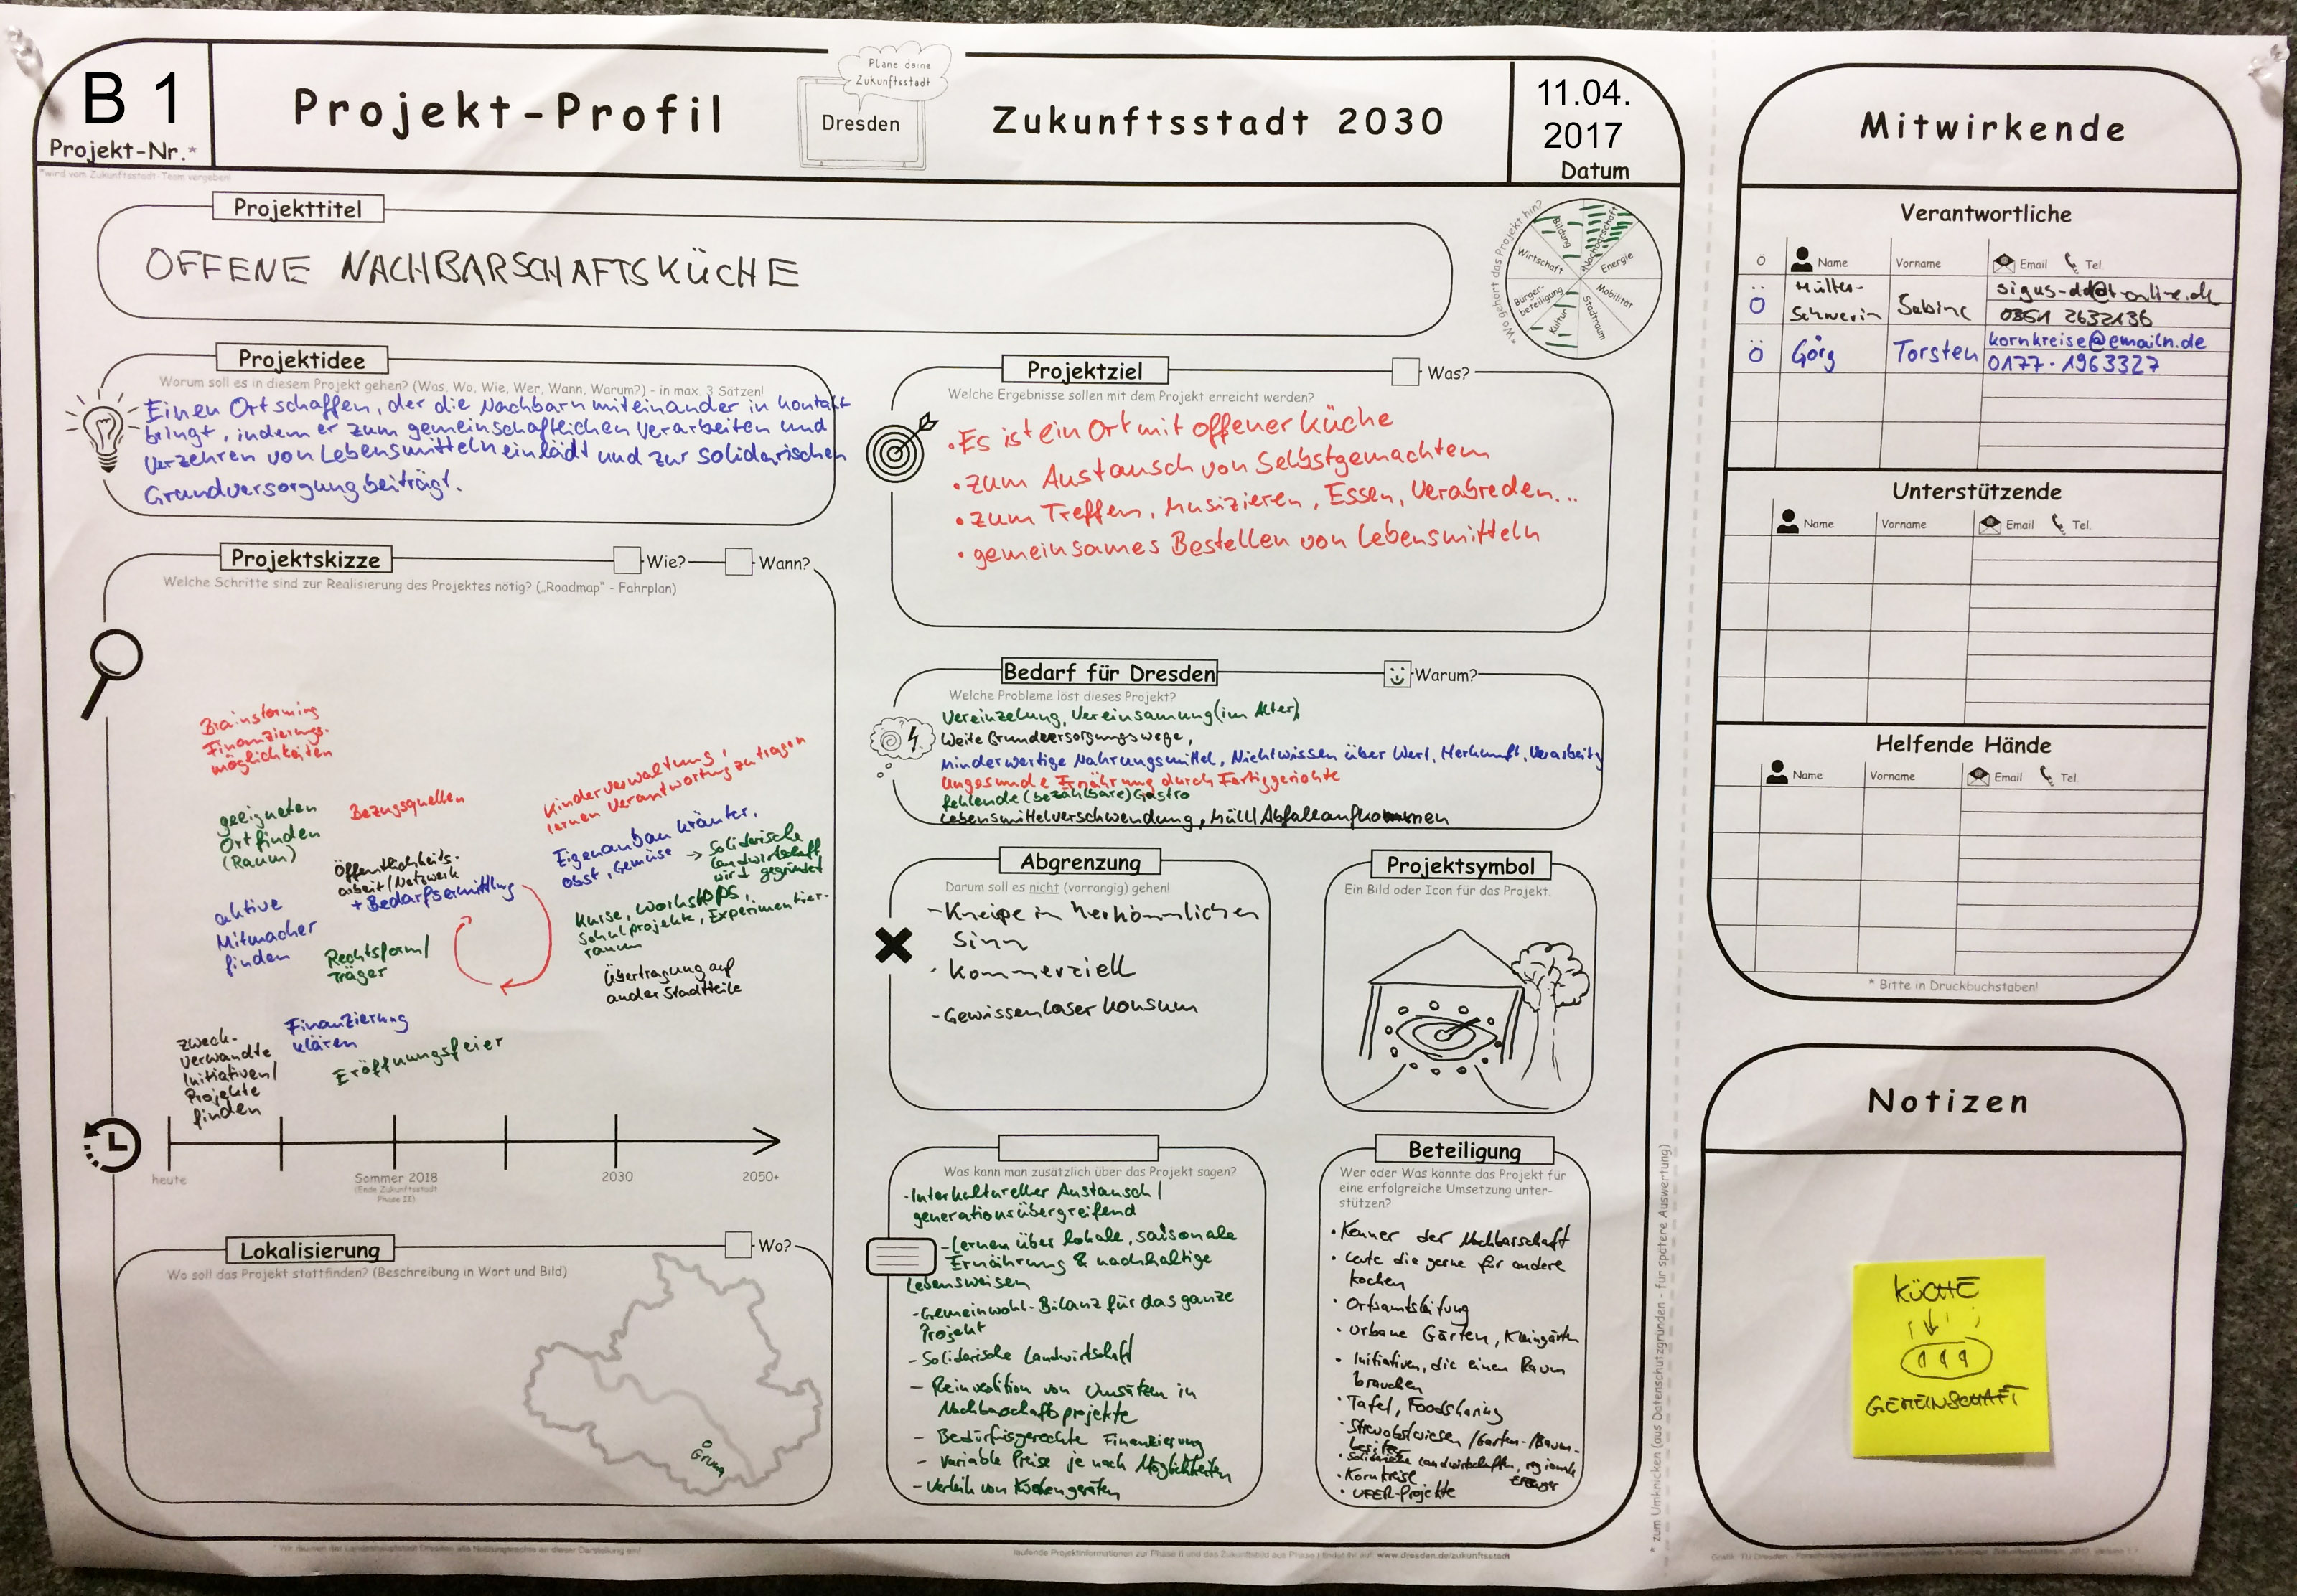 B 1
Projekt-Nr.*
*wird vom Zukunftsstadt-Team vergeben!
Projekt-Profil
Plane deine
Zukunftsstadt
Dresden
Zukunftsstadt 2030
11.04.
2017
Datum
Projekttitel
OFFENE NACHBARSCHAFTSKÜCHE
*Wo gehört das Projekt hin?
Bildung
Nachbarschaft
Energie
Mobilität
Stadtraum
Kultur
Bürger-
beteiligung
Wirtschaft
Projektidee
Worum soll es in diesem Projekt gehen? (Was, Wo, Wie, Wer, Wann, Warum?) - in max. 3 Sätzen!
Einen Ort schaffen, der die Nachbarn miteinander in Kontakt
bringt, indem er zum gemeinschaftlichen Verarbeiten und
Verzehren von Lebensmitteln einlädt und zur solidarischen
Grundversorgung beiträgt.
Projektskizze
Wie?
Wann?
Welche Schritte sind zur Realisierung des Projektes nötig? („Roadmap" - Fahrplan)
Brainstorming
Finanzierungs-
möglichkeiten
geeigneten
Ort finden
(Raum)
Bezugsquellen
Öffentlichkeits-
arbeit/Netzwerk
+ Bedarfsermittlung
aktive
Mitmacher
finden
Rechtsform/
Träger
Kinderverwaltung,
lernen Verantwortung zu tragen
Eigenanbau Kräuter,
Obst, Gemüse
→ Solidarische
Landwirtschaft
wird gegründet
Kurse, Workshops,
Schulprojekte, Experimentier-
raum
Übertragung auf
ander Stadtteile
zweck-
verwandte
Initiativen/
Projekte
finden
Finanzierung
klären
Eröffnungsfeier
heute
Sommer 2018
(Ende Zukunftsstadt
Phase II)
2030
2050+
Lokalisierung
Wo?
Wo soll das Projekt stattfinden? (Beschreibung in Wort und Bild)
Gruna
Projektziel
Was?
Welche Ergebnisse sollen mit dem Projekt erreicht werden?
• Es ist ein Ort mit offener Küche
• zum Austausch von Selbstgemachtem
• zum Treffen, Musizieren, Essen, Verabreden...
• gemeinsames Bestellen von Lebensmitteln
Bedarf für Dresden
Warum?
Welche Probleme löst dieses Projekt?
Vereinzelung, Vereinsamung (im Alter),
Weite Grundversorgungswege,
Minderwertige Nahrungsmittel, Nichtwissen über Wert, Herkunft, Verarbeitg
Ungesunde Ernährung durch Fertiggerichte
fehlende (bezahlbare) Gastro
Lebensmittelverschwendung, Müll/Abfallaufkommen
Abgrenzung
Darum soll es nicht (vorrangig) gehen!
- Kneipe in herkömmlichen
Sinn
- kommerziell
- Gewissenloser Konsum
Projektsymbol
Ein Bild oder Icon für das Projekt.
Was kann man zusätzlich über das Projekt sagen?
- Interkultureller Austausch/
generationsübergreifend
- Lernen über lokale, saisonale
Ernährung & nachhaltige
Lebensweisen
- Gemeinwohl-Bilanz für das ganze
Projekt
- Solidarische Landwirtschaft
- Reinvestition von Umsätzen in
Nachbarschaftsprojekte
- Bedürfnisgerechte Finanzierung
- variable Preise je nach Möglichkeiten
- Verleih von Küchengeräten
Beteiligung
Wer oder Was könnte das Projekt für
eine erfolgreiche Umsetzung unter-
stützen?
• Kenner der Nachbarschaft
• Leute die gerne für andere
kochen
• Ortsamtsleitung
• Urbane Gärten, Kleingärten
• Initiativen, die einen Raum
brauchen
• Tafel, Foodsharing
• Streuobstwiesen/Garten-/Baum-
besitzer
• Solidarische Landwirtschaften, regionale
Erzeuger
• Kornkreise
• UFER-Projekte
* zum Umknicken (aus Datenschutzgründen - für spätere Auswertung)
Mitwirkende
Verantwortliche
Name
Vorname
Email
Tel.
Müller-
Schwerin
Sabine
sigus-dd@t-online.de
0351 2632136
Görg
Torsten
kornkreise@emailn.de
0177-1963327
Unterstützende
Name
Vorname
Email
Tel.
Helfende Hände
Name
Vorname
Email
Tel.
* Bitte in Druckbuchstaben!
Notizen
KÜCHE
GEMEINSCHAFT
* Wir räumen der Landeshauptstadt Dresden alle Nutzungsrechte an dieser Darstellung ein!
laufende Projektinformationen zur Phase II und das Zukunftsbild aus Phase I findet ihr auf: www.dresden.de/zukunftsstadt